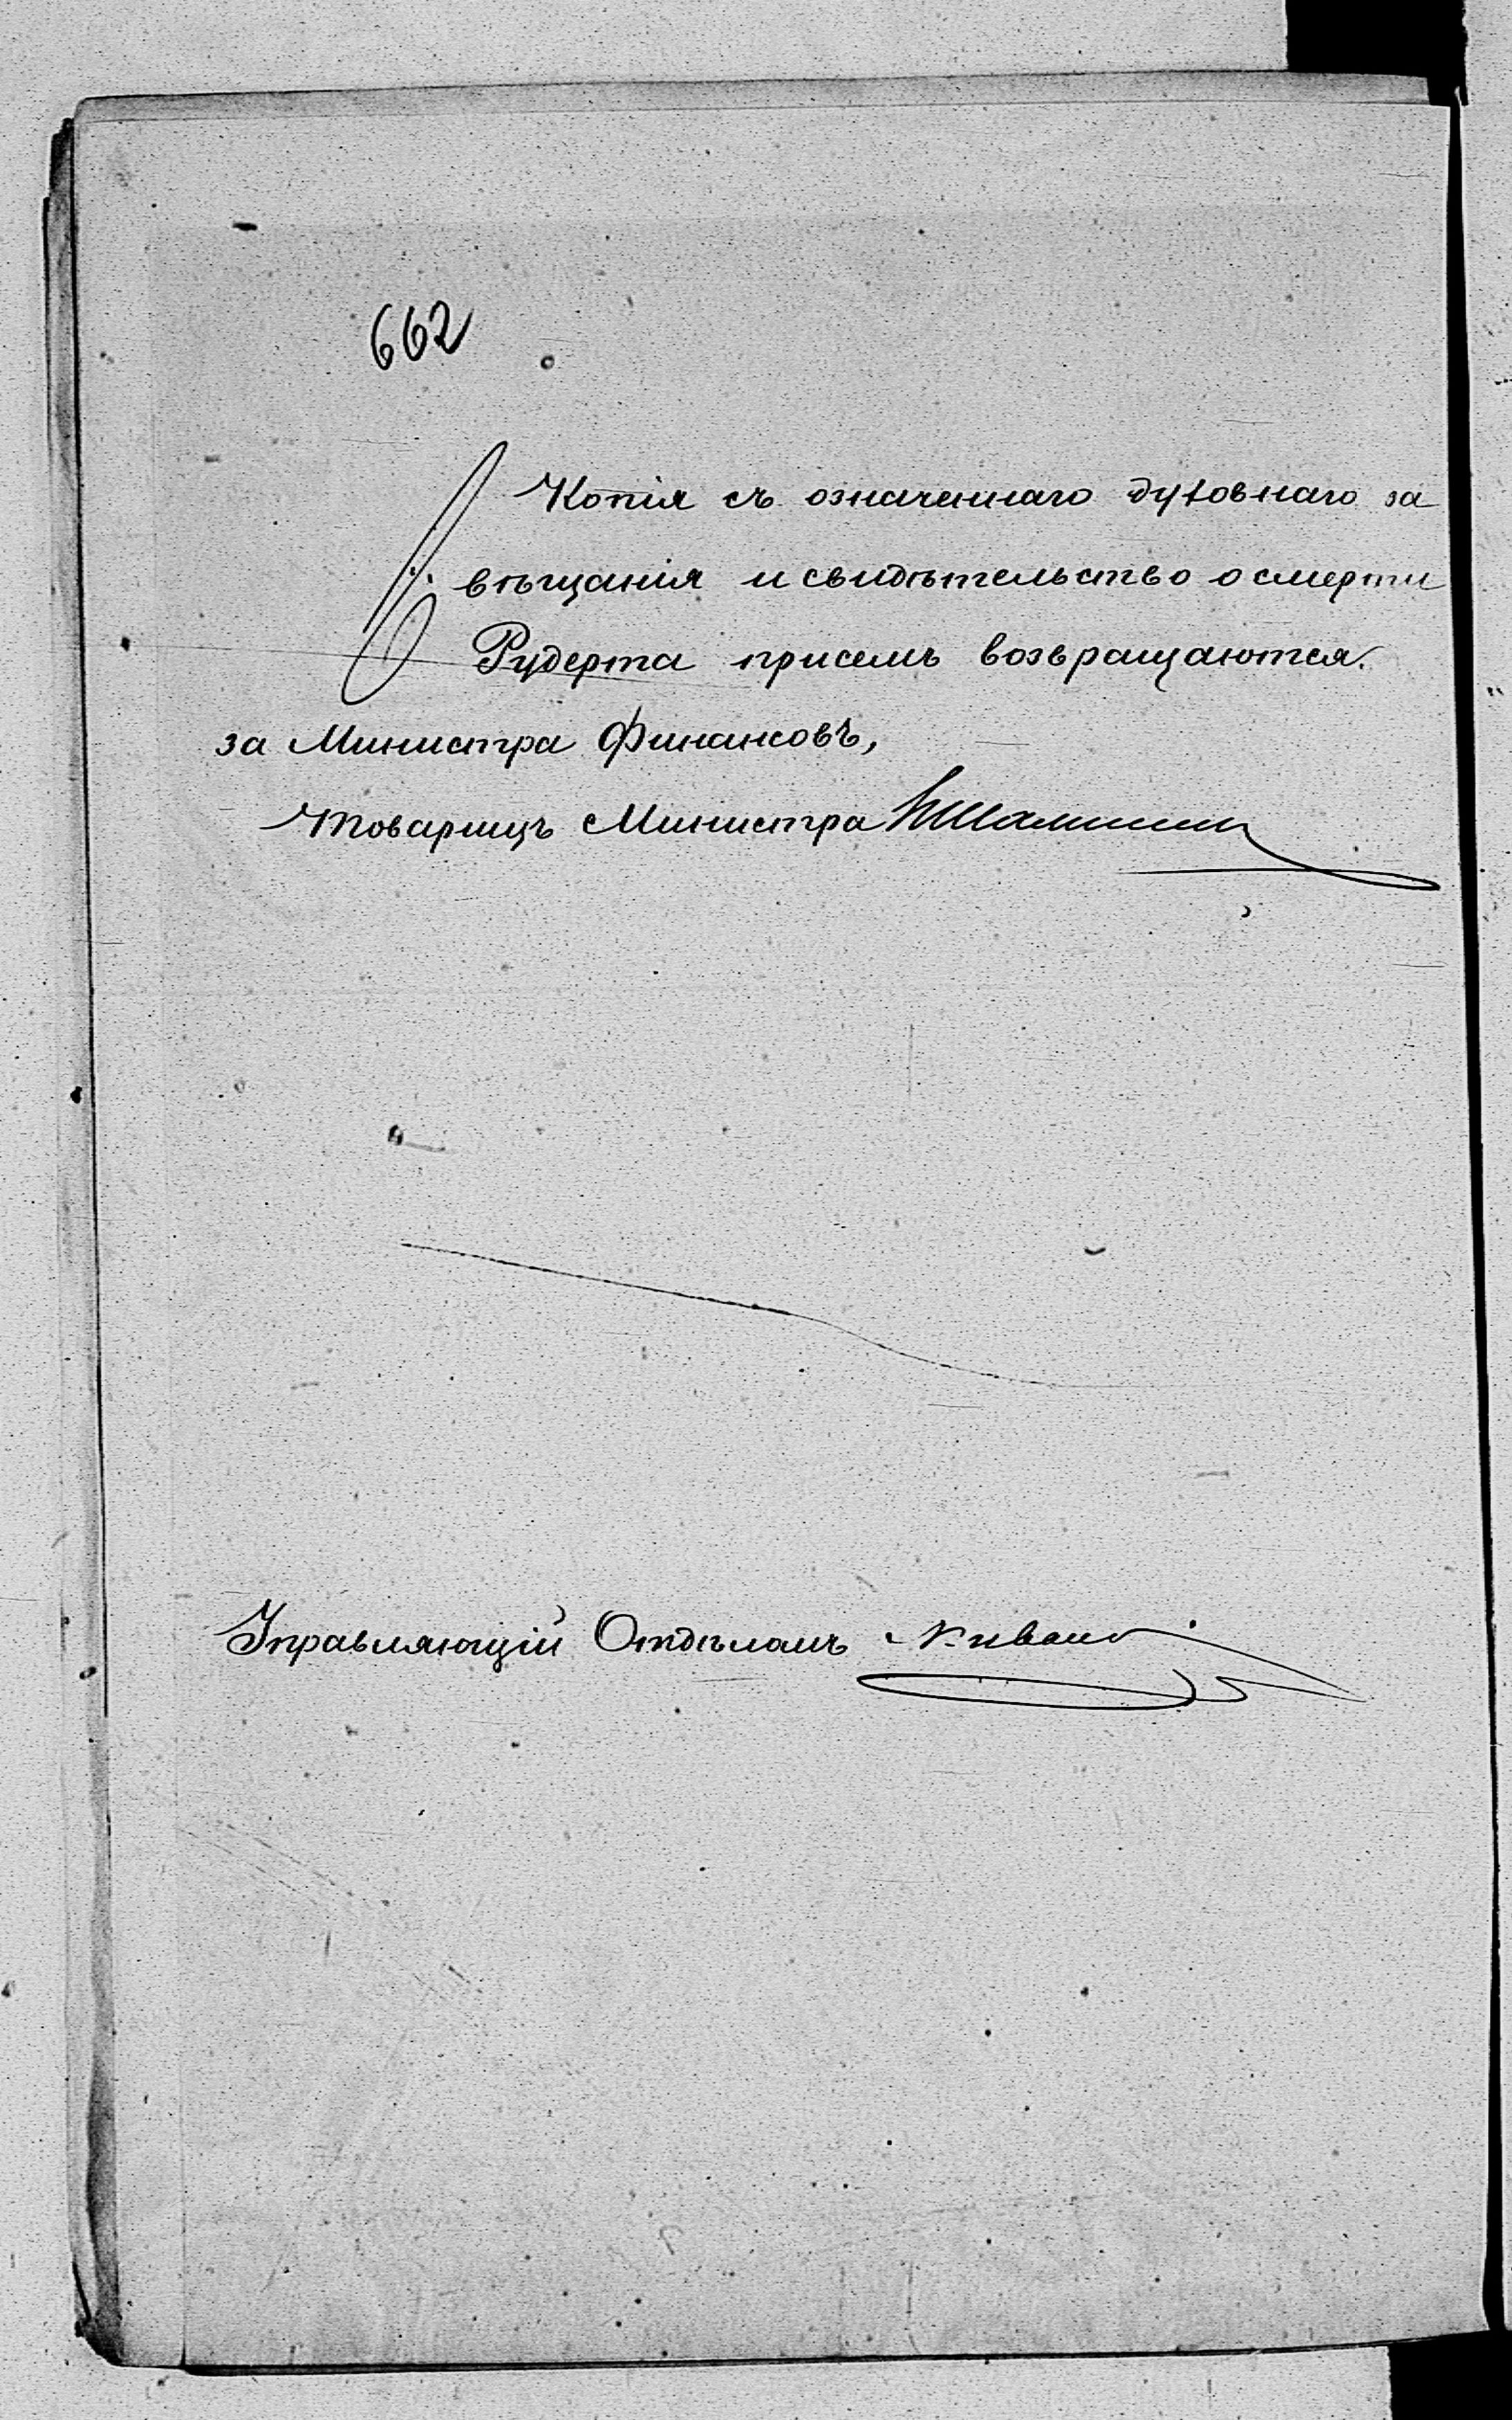 662
Копія съ означеннаго духовнаго за
вѣщанія и свидѣтельство о смерти
Рудерта присемъ возвращаются.
за Министра Финансовъ,
Товарищъ Министра
Управляющій Отдѣломъ